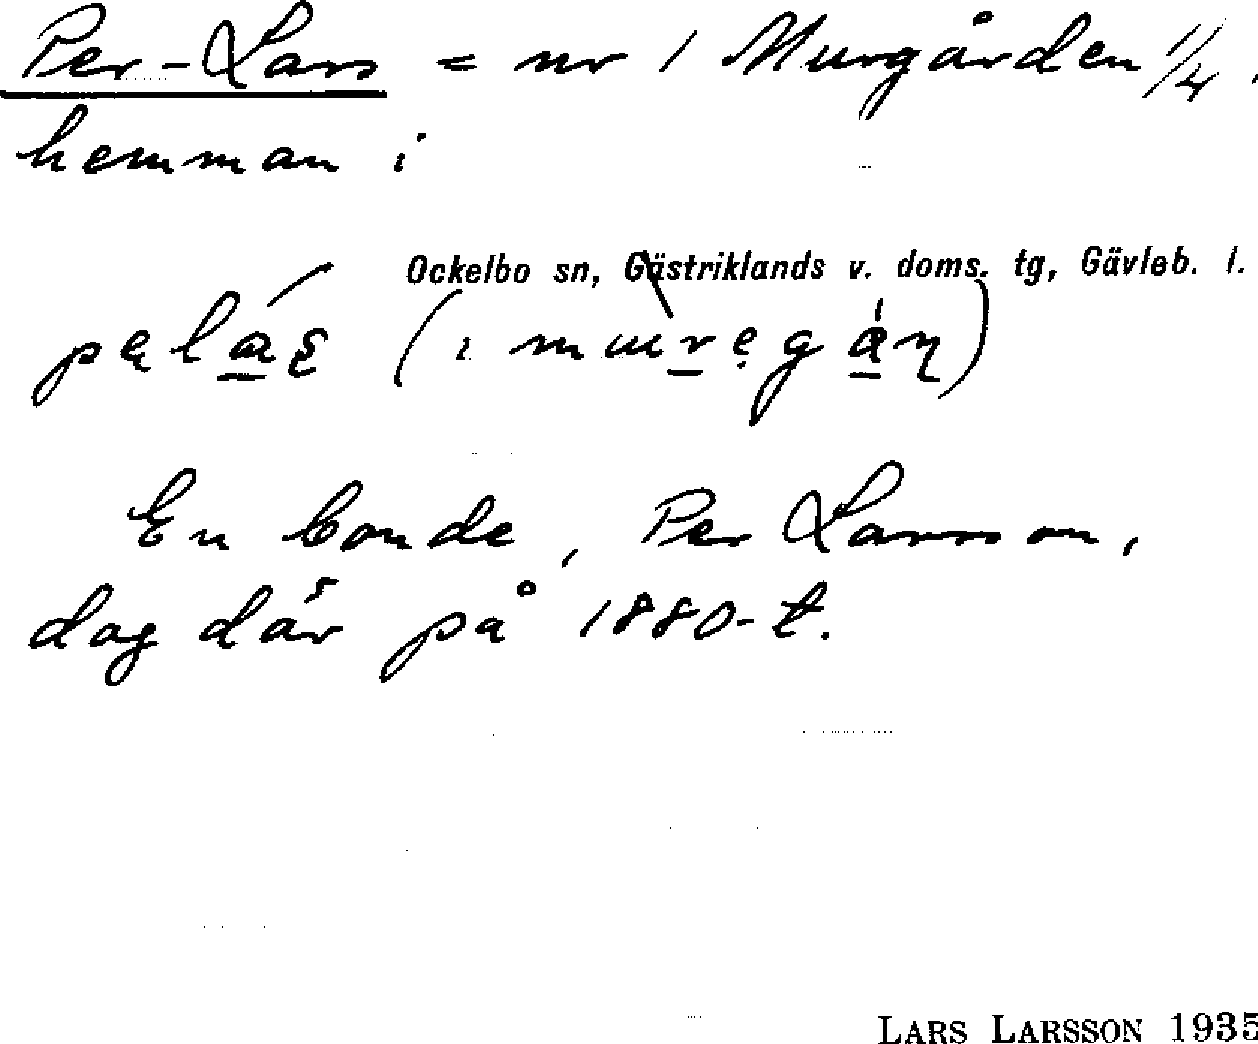 Per-Lars = nr 1 Murgården 1/4
hemman i
Ockelbo sn, Gästriklands v. doms. tg, Gävleb. l.
En bonde, Per Larsson,
dog där på 1880-t.
LARS LARSSON 1935